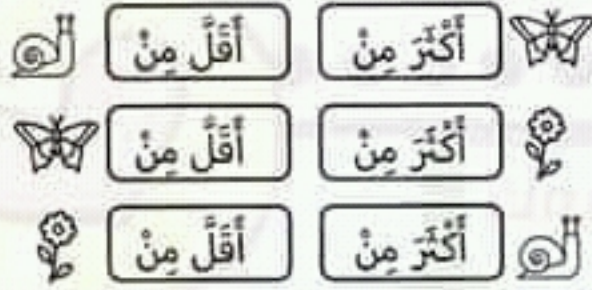 أَكْثَرَ مِنْ أَقَلَّ مِنْ
أَكْثَرَ مِنْ أَقَلَّ مِنْ
أَكْثَرَ مِنْ أَقَلَّ مِنْ